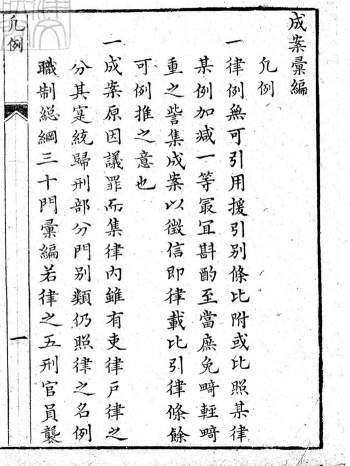 成案彙編
凡例
一律例無可引用援引別條比附或比照某律
某例加减一等㝡冝斟酌至當庶免畸軽畸
重之訾集成案以徵信即律載比引律條餘
可例推之意也
一成案原因議罪而集律內雖有吏律戶律之
分其寔統歸刑部分門別類仍照律之名例
職制総綱三十門彙編若律之五刑官員襲
凡例
一